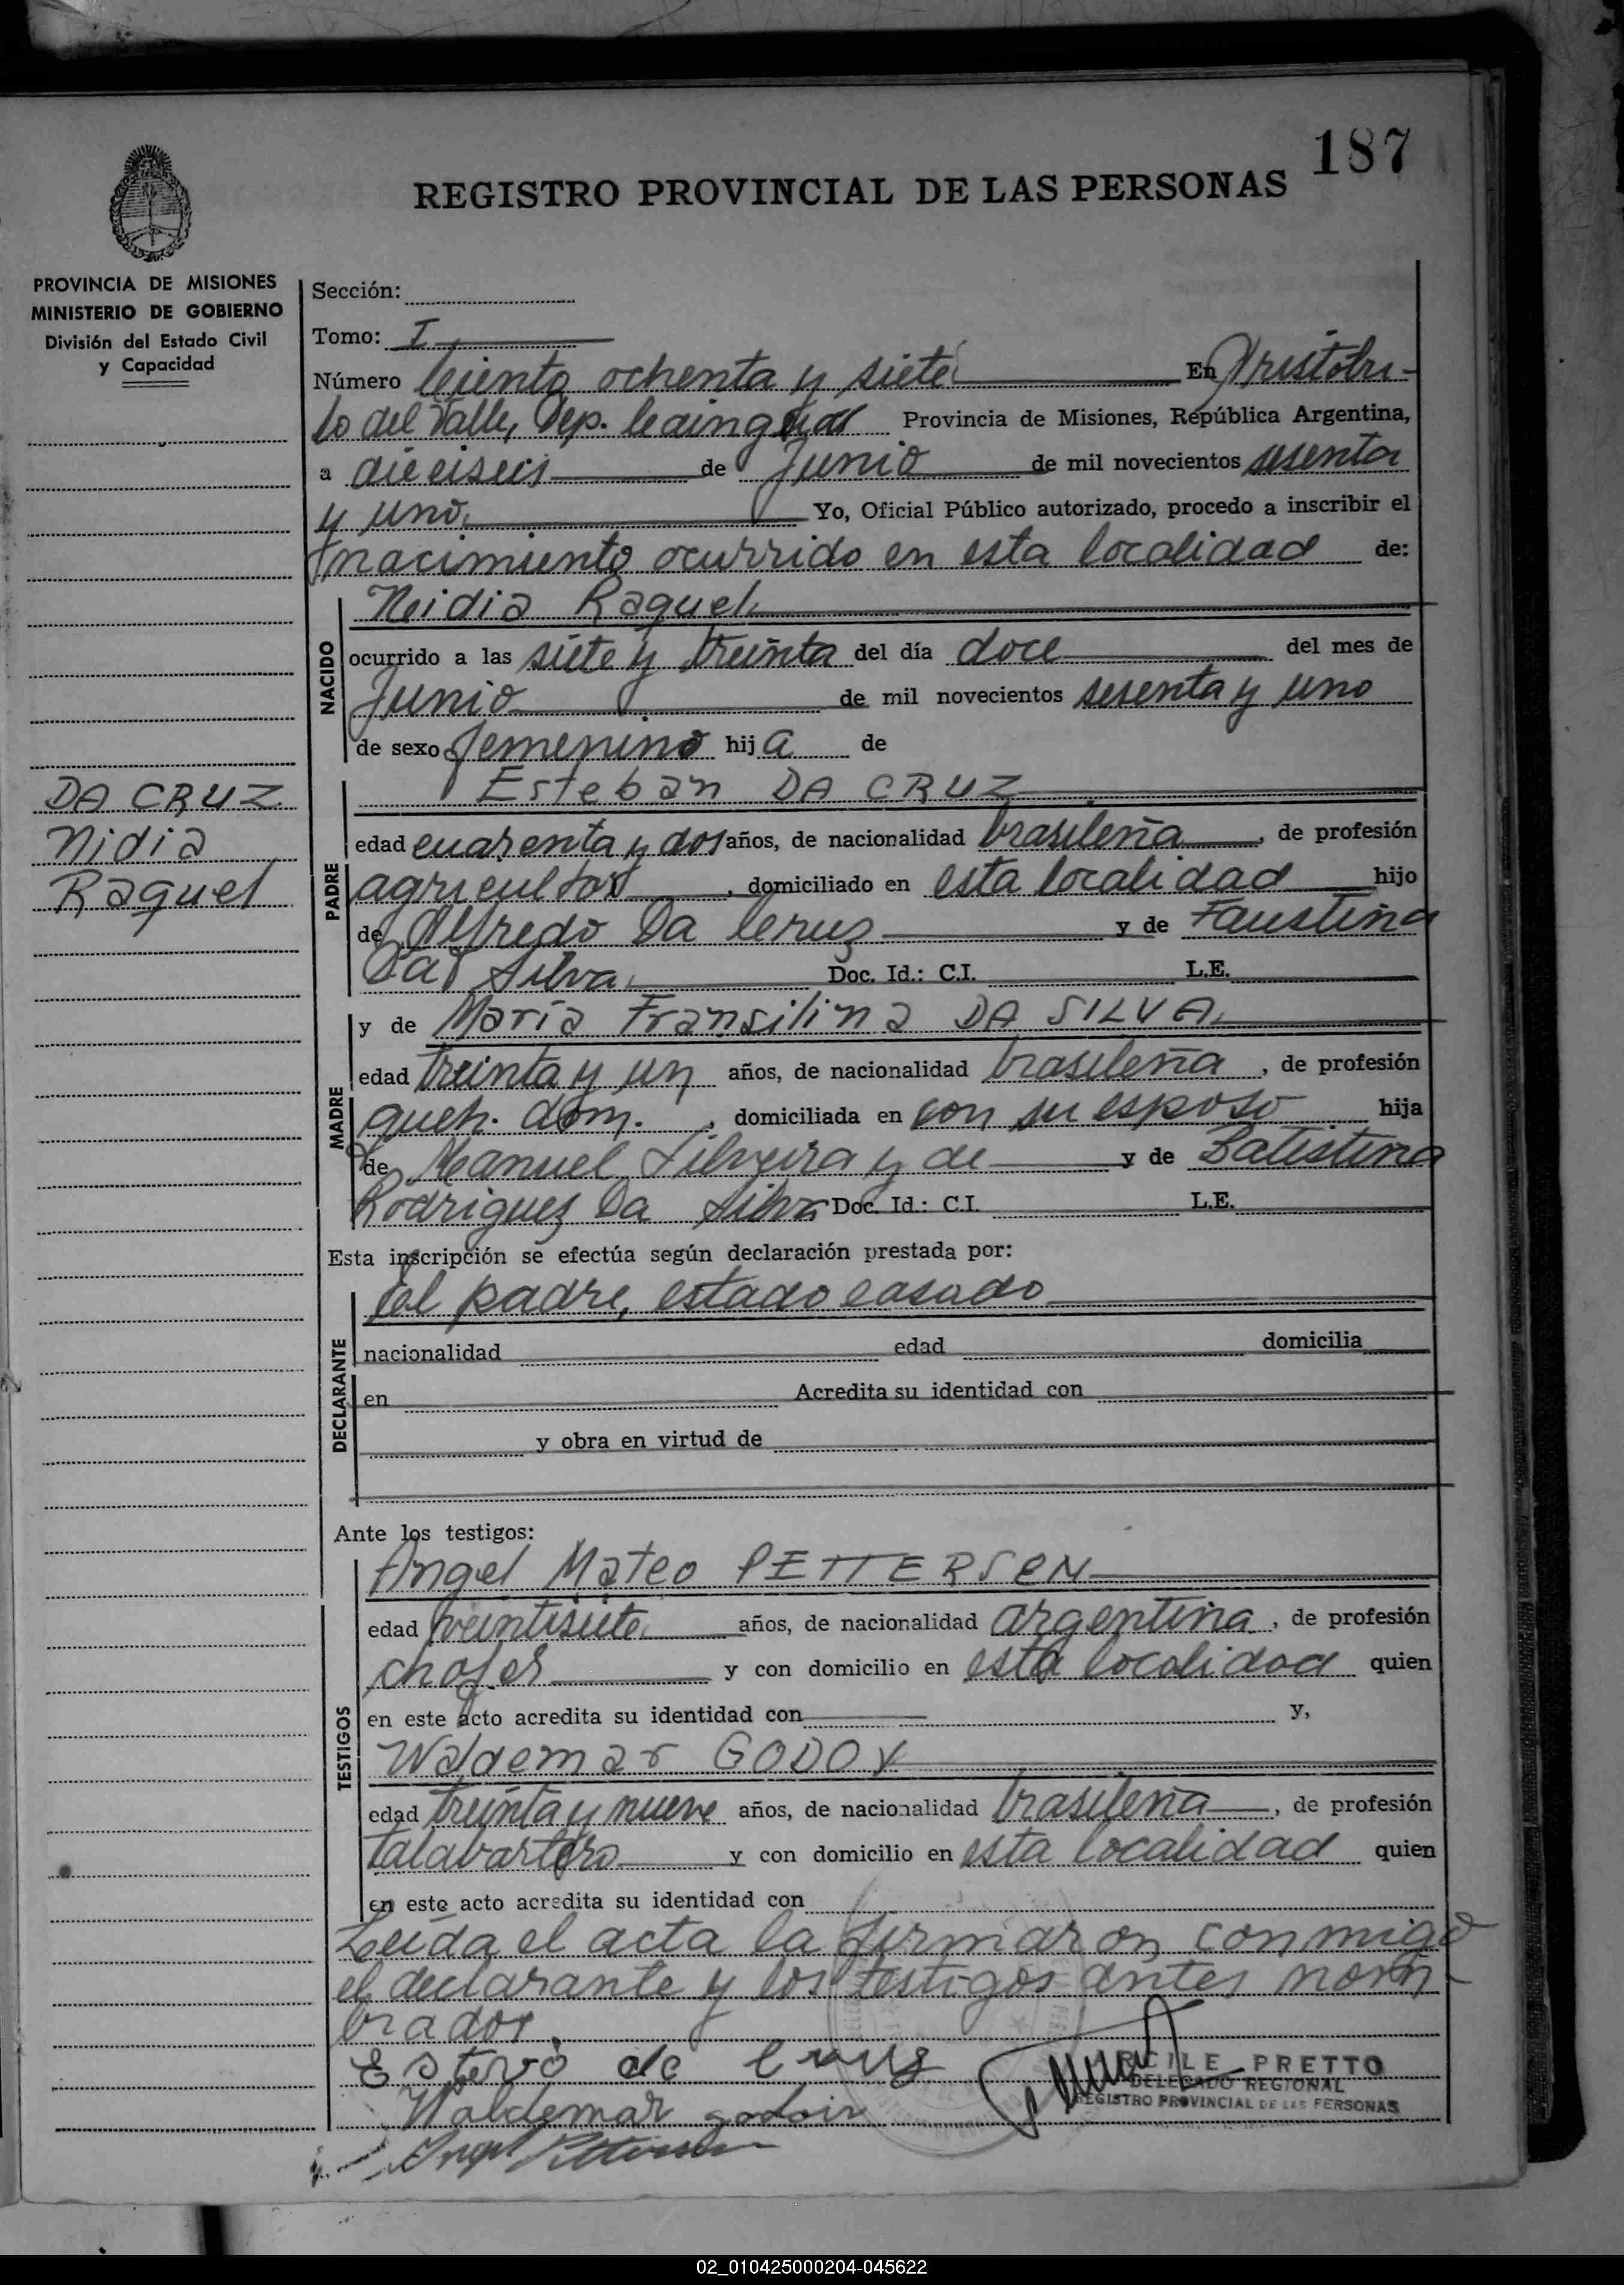 187
REGISTRO PROVINCIAL DE LAS PERSONAS
PROVINCIA DE MISIONES
MINISTERIO DE GOBIERNO
División del Estado Civil
y Capacidad
DA CRUZ
Nidia
Raquel
Sección:
Tomo: I
Número Ciento ochenta y siete En Aristobu-
lo del Valle, Dep. Caingúas Provincia de Misiones, República Argentina,
a dieciseis de Junio de mil novecientos sesenta
y uno. Yo, Oficial Público autorizado, procedo a inscribir el
nacimiento ocurrido en esta localidad de:
NACIDO
Neidia Raquel
ocurrido a las siete y treinta del día doce del mes de
Junio de mil novecientos sesenta y uno
de sexo femenino hija de
PADRE
Esteban DA CRUZ
edad cuarenta y dos años, de nacionalidad brasileña, de profesión
agricultor, domiciliado en esta localidad hijo
de Alfredo Da Cruz y de Faustina
Da Silva, Doc. Id.: C.I. L.E.
MADRE
y de María Fransilina DA SILVA,
edad treinta y un años, de nacionalidad brasileña, de profesión
queh. dom., domiciliada en con su esposo hija
de Manuel Silveira y de y de Batistina
Rodriguez Da Silva Doc. Id.: C.I. L.E.
Esta inscripción se efectúa según declaración prestada por:
DECLARANTE
El padre, estado casado
nacionalidad edad domicilia
en Acredita su identidad con
y obra en virtud de
Ante los testigos:
TESTIGOS
Angel Mateo PETTERSEN
edad veintisiete años, de nacionalidad argentina, de profesión
chofer y con domicilio en esta localidad quien
en este acto acredita su identidad con y,
Waldemar GODOY
edad treinta y nueve años, de nacionalidad brasileña, de profesión
talabartero y con domicilio en esta localidad quien
en este acto acredita su identidad con
Leída el acta la firmaron conmigo
el declarante y los testigos antes nom-
brados.
Estevo da Cruz
CILE PRETTO
DELEGADO REGIONAL
REGISTRO PROVINCIAL DE LAS PERSONAS
Waldemar godoir
Angel Pettersen
02_010425000204-045622